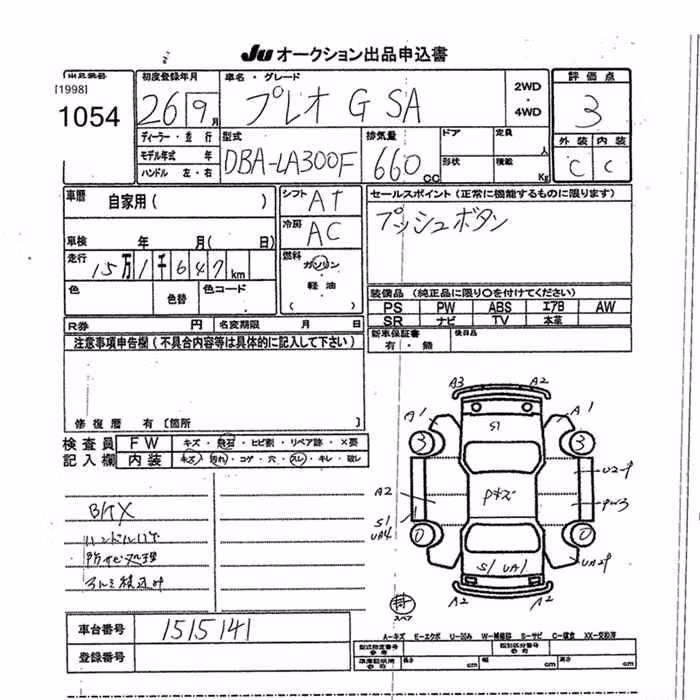 JU オークション出品申込書
出品番号
[1998]
1054
初度登録年月
26 9月
車名・グレード
プレオ G SA
2WD
・
4WD
評価点
3
外装 内装
C C
ディーラー・並行
モデル年式 年
ハンドル 左・右
型式
DBA-LA300F
排気量
660 CC
ドア
定員 人
形状
積載 Kg
車歴
自家用( )
シフト AT
冷房 AC
車検 年 月( 日)
走行 15万1千647km
燃料
ガソリン
・
軽油
( )
色
色替
色コード
セールスポイント(正常に機能するものに限ります)
プッシュボタン
装備品(純正品に限り○を付けてください)
PS PW ABS エアB AW
SR ナビ TV 本革
新車保証書
有・無
後日品
R券 円
名変期限 月 日
注意事項申告欄(不具合内容等は具体的に記入して下さい)
修復歴 有[箇所 ]
検査員
記入欄
FW キズ・飛石・ヒビ割・リペア跡・×要
内装 キズ・汚れ・コゲ・穴・スレ・キレ・破レ
ハンドルハゲ
防サビ処理
アルミ積込み
A3 A2
A1 A1
S1
3 3
U2-P
A2
Pキズ
PW3
S1
UA4
0 0
S1 UA1
UA2P
A2 A2
スペア
車台番号 1515141
登録番号
A-キズ E-エクボ U-凹み W-補修跡 S-サビ C-腐食 XX-交換済
型式指定番号
参考
類別区分番号
参考
車庫証明用
参考
長さ cm 幅 cm 高さ cm